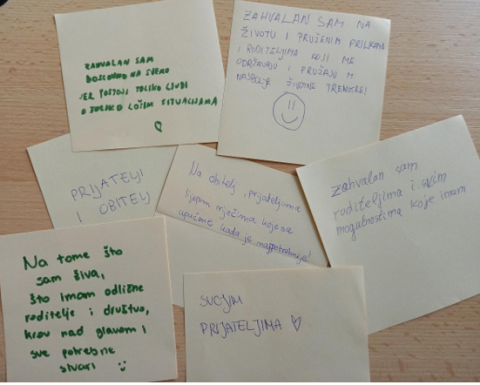 ZAHVALAN SAM
DOSLOVNO NA SVEMU
JER POSTOJI TOLIKO LJUDI
U TOLIKO LOŠIM SITUACIJAMA
ZAHVALAN SAM NA
ŽIVOTU I PRUŽENIM PRILIKAMA
I RODITELJIMA KOJI ME
ODRŽAVAJU I PRUŽAJU MI
NAJBOLJE ŽIVOTNE TRENUTKE!
PRIJATELJI
I OBITELJ
Na obitelj, prijateljima
lijepim riječima koje me
upućene kada je
zahvalan sam
roditeljima i svim
mogućnostima koje imam
Na tome što
sam živa,
što imam odlične
roditelje i društvo,
krov nad glavom i
sve potrebne
stvari
SVOJIM
PRIJATELJIMA